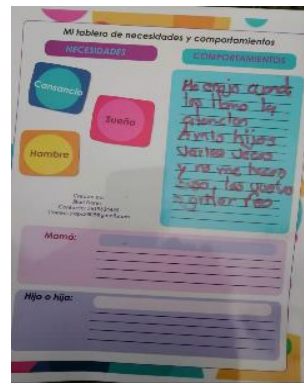 Mi tablero de necesidades y comportamientos
NECESIDADES
COMPORTAMIENTOS
Cansancio
Sueño
Hambre
Me enojo cuando
les llamo la
atención
A mis hijos
varias veces
y no me hacen
caso les vuelvo
a gritar
Mamá:
Hijo o hija: